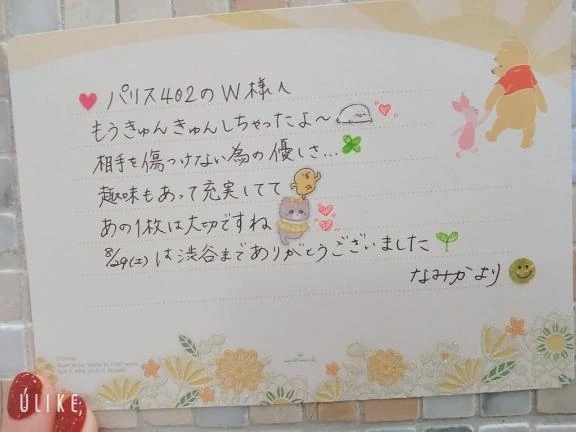 パリス402のW様へ
もうきゅんきゅんしちゃったよ〜
相手を傷つけない為の優しさ…
趣味もあって充実してて
あの1枚は大切ですね
8/29(土)は渋谷までありがとうございました
なみかより
© Disney
Based on the "Winnie the Pooh" works
by A. A. Milne and E. H. Shepard.
Hallmark
ULIKE